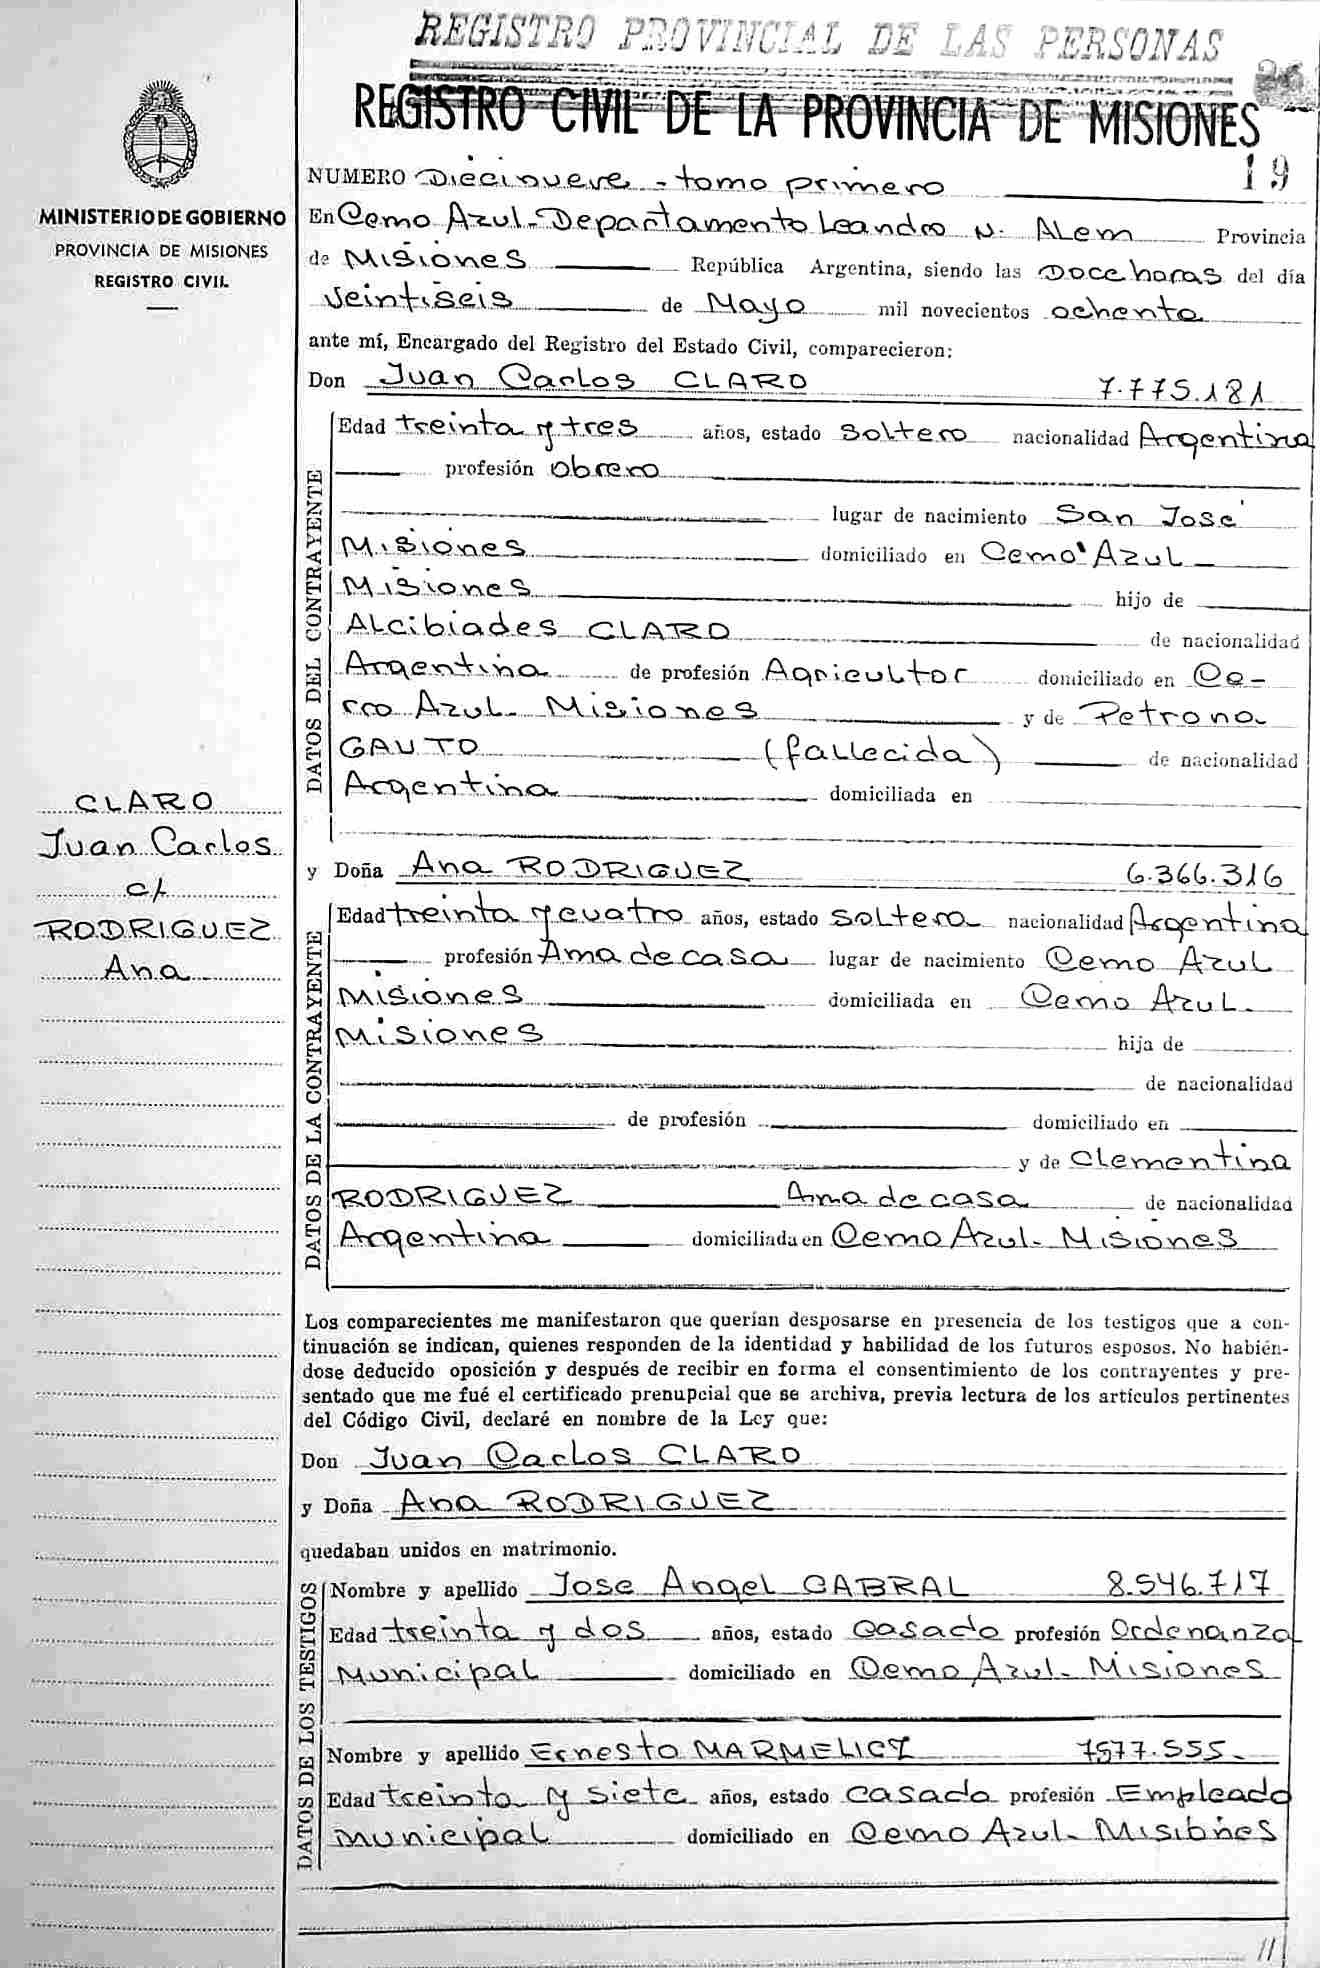 REGISTRO PROVINCIAL DE LAS PERSONAS
REGISTRO CIVIL DE LA PROVINCIA DE MISIONES
19
MINISTERIO DE GOBIERNO
PROVINCIA DE MISIONES
REGISTRO CIVIL
NUMERO Diecinueve - tomo primero
En Cerro Azul - Departamento Leandro N. Alem Provincia
de Misiones República Argentina, siendo las Doce horas del día
Veintiseis de Mayo mil novecientos ochenta
ante mí, Encargado del Registro del Estado Civil, comparecieron:
Don Juan Carlos CLARO 7.775.181
DATOS DEL CONTRAYENTE
Edad treinta y tres años, estado soltero nacionalidad Argentina
profesión obrero
lugar de nacimiento San José
Misiones domiciliado en Cerro Azul -
Misiones hijo de
Alcibiades CLARO de nacionalidad
Argentina de profesión Agricultor domiciliado en Ce-
rro Azul - Misiones y de Petrona
GAUTO (fallecida) de nacionalidad
Argentina domiciliada en
CLARO
Juan Carlos
c/
RODRIGUEZ
Ana
y Doña Ana RODRIGUEZ 6.366.316
DATOS DE LA CONTRAYENTE
Edad treinta y cuatro años, estado soltera nacionalidad Argentina
profesión Ama de casa lugar de nacimiento Cerro Azul
Misiones domiciliada en Cerro Azul -
Misiones hija de
de nacionalidad
de profesión domiciliado en
y de Clementina
RODRIGUEZ Ama de casa de nacionalidad
Argentina domiciliada en Cerro Azul - Misiones
Los comparecientes me manifestaron que querían desposarse en presencia de los testigos que a con-
tinuación se indican, quienes responden de la identidad y habilidad de los futuros esposos. No habién-
dose deducido oposición y después de recibir en forma el consentimiento de los contrayentes y pre-
sentado que me fué el certificado prenupcial que se archiva, previa lectura de los artículos pertinentes
del Código Civil, declaré en nombre de la Ley que:
Don Juan Carlos CLARO
y Doña Ana RODRIGUEZ
quedaban unidos en matrimonio.
DATOS DE LOS TESTIGOS
Nombre y apellido Jose Angel CABRAL 8.546.717
Edad treinta y dos años, estado casado profesión Ordenanza
Municipal domiciliado en Cerro Azul - Misiones
Nombre y apellido Ernesto MARMELICZ 7577.555 -
Edad treinta y siete años, estado casado profesión Empleado
municipal domiciliado en Cerro Azul - Misiones